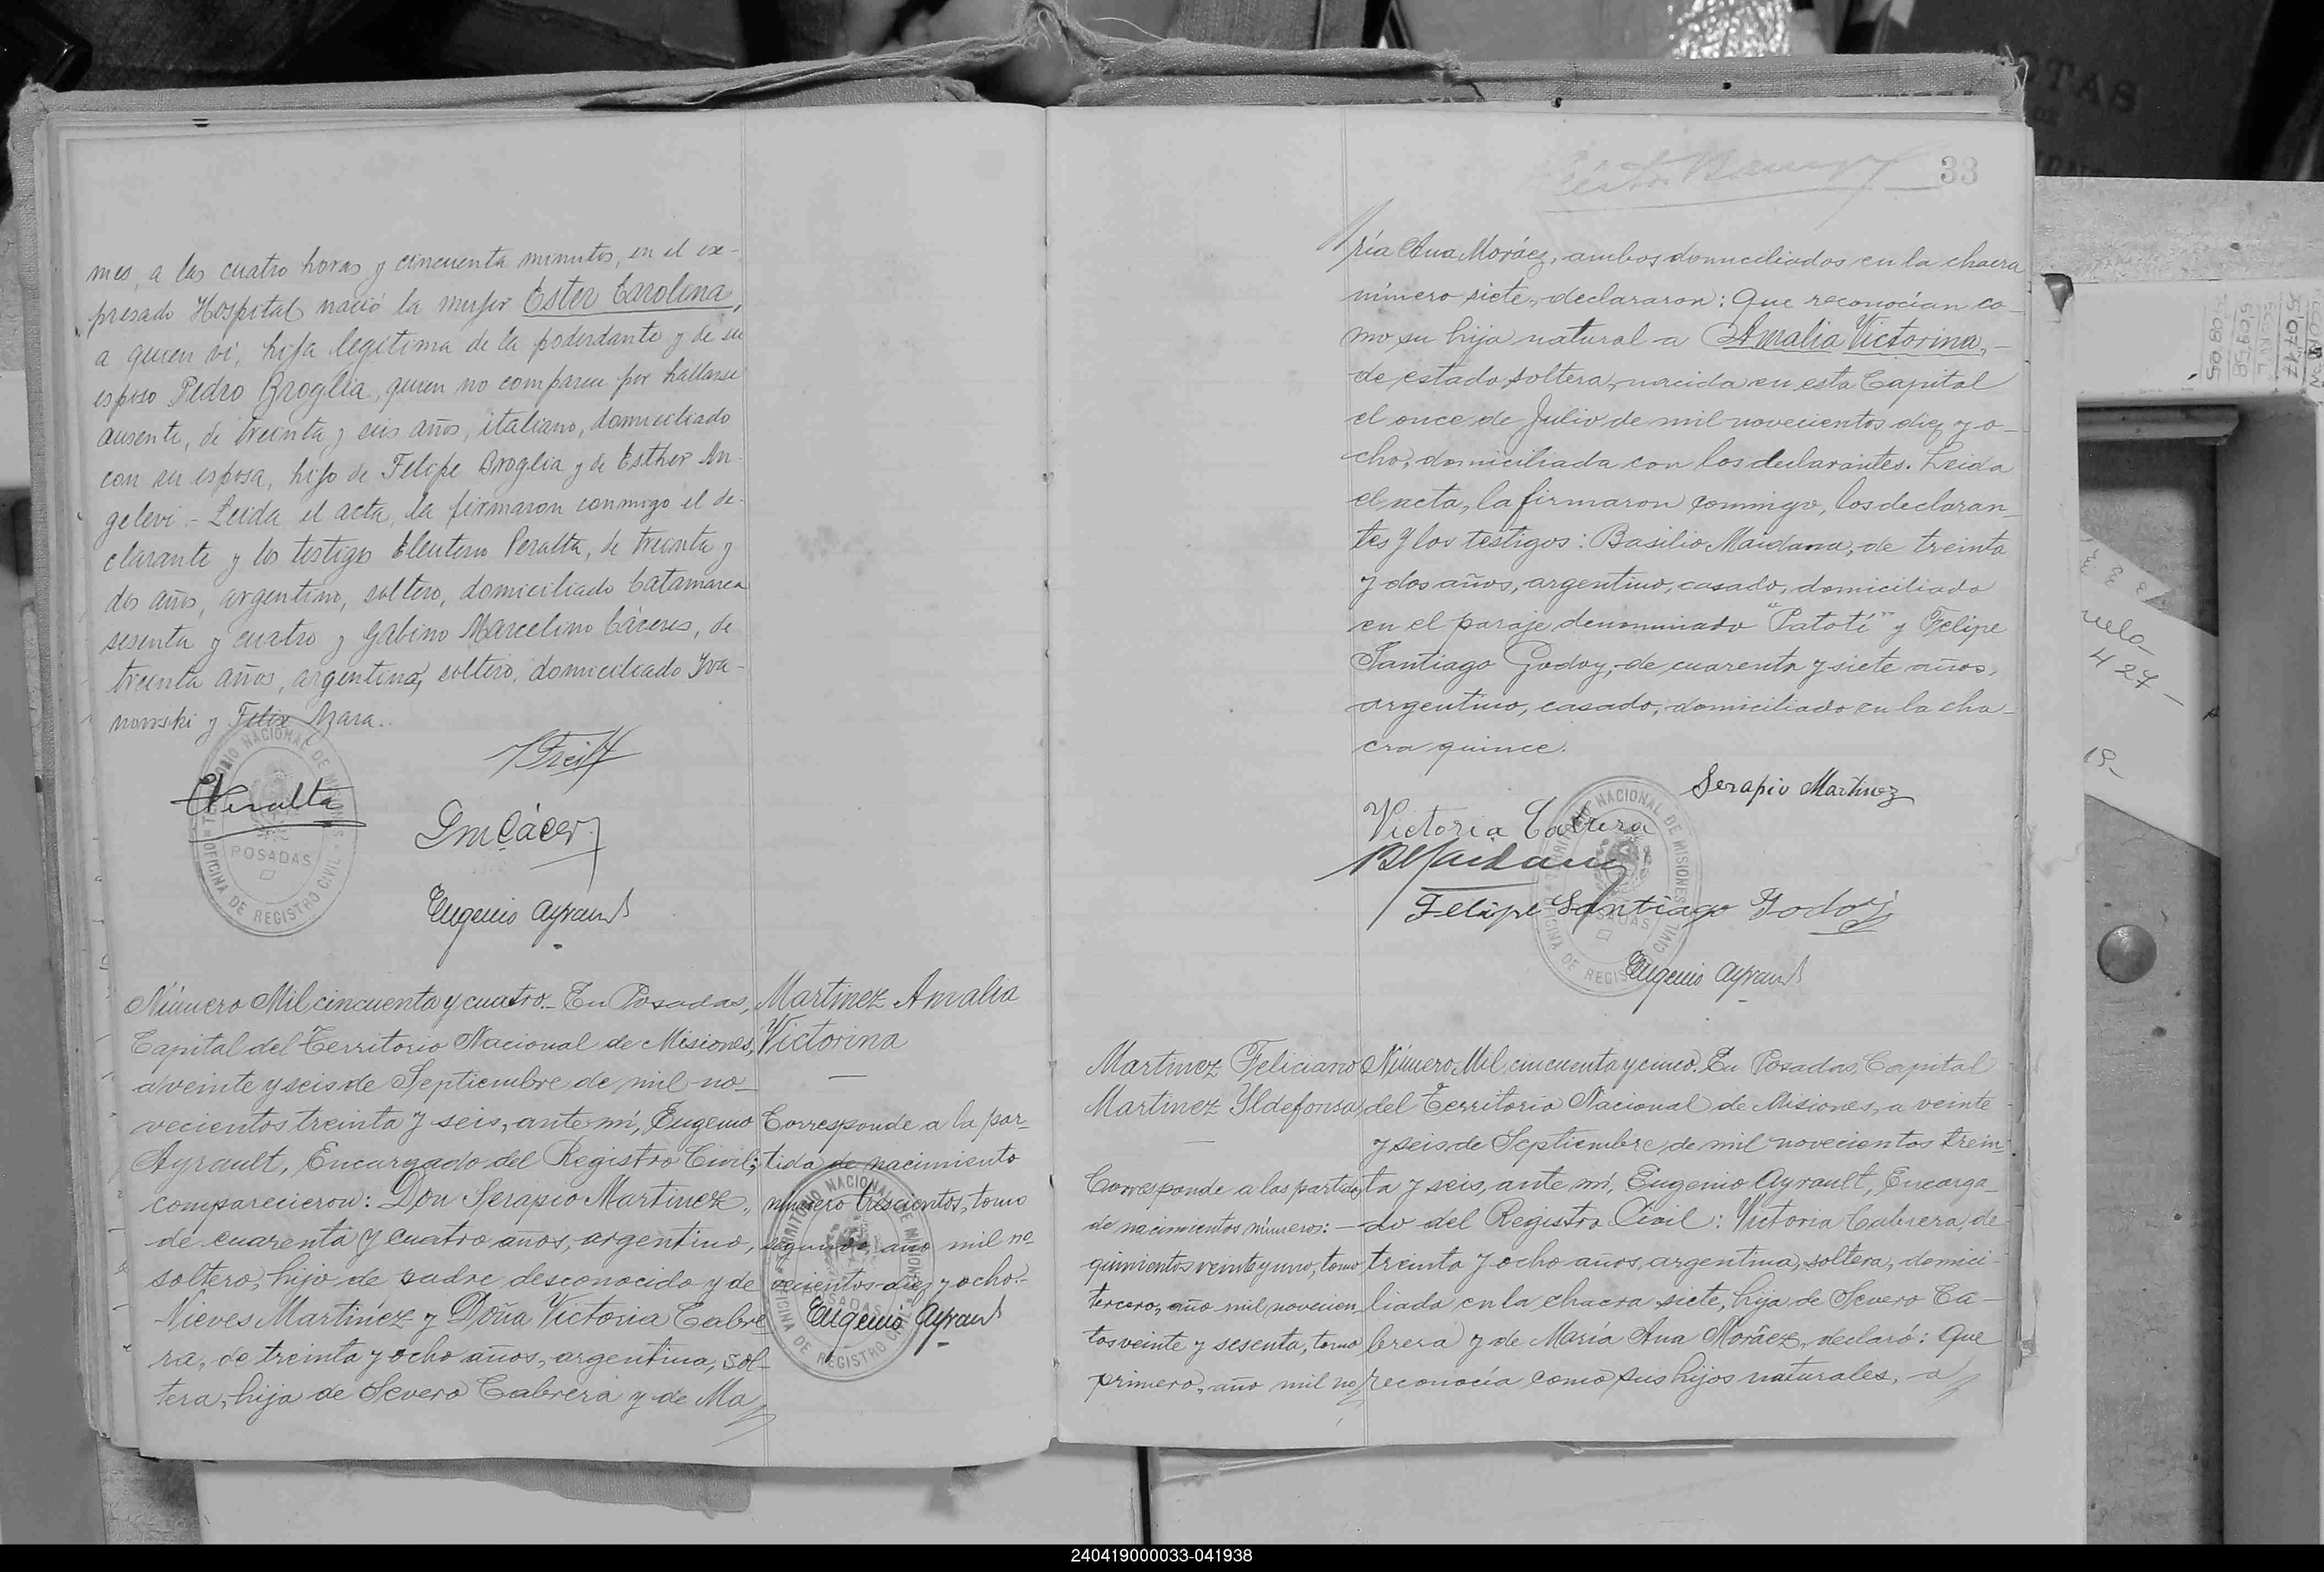 mes, a las cuatro horas y cincuenta minutos, en el ex-
presado Hospital nació la mujer Ester Carolina,
a quien vi, hija legitima de la poderdante y de su
esposo Pedro Broglia, quien no comparece por hallarse
ausente, de treinta y seis años, italiano, domiciliado
con su esposa, hijo de Felipe Broglia y de Esther An-
gelevi.- Leida el acta, la firmaron conmigo el de-
clarante y los testigos Eleuterio Peralta, de treinta y
dos años, argentino, soltero, domiciliado Catamarca
sesenta y cuatro y Gabino Marcelino Cáceres, de
treinta años, argentino, soltero, domiciliado Iva-
nowski y Felix Azara..
TERRITORIO NACIONAL DE MISIONES
POSADAS
OFICINA DE REGISTRO CIVIL
EPeralta
GmCácer
Eugenio Ayrault
Número Mil cincuenta y cuatro.- En Posadas,
Capital del Territorio Nacional de Misiones,
a veinte y seis de Septiembre de mil no-
vecientos treinta y seis, ante mí, Eugenio
Ayrault, Encargado del Registro Civil;
comparecieron: Don Serapio Martinez,
de cuarenta y cuatro años, argentino,
soltero, hijo de padre desconocido y de
Nieves Martinez y Doña Victoria Cabre
ra, de treinta y ocho años, argentina, sol-
tera, hija de Severo Cabrera y de Ma
Martinez Amalia
Victorina
—
Corresponde a la par-
tida de nacimiento
número trescientos, tomo
segundo, año mil no-
vecientos diez y ocho.-
Eugenio Ayrault
TERRITORIO NACIONAL DE MISIONES
POSADAS
OFICINA DE REGISTRO CIVIL
33
ría Ana Moráez, ambos domiciliados en la chacra
número siete, declararon: Que reconocían co-
mo su hija natural a Amalia Victorina,-
de estado soltera, nacida en esta Capital
el once de Julio de mil novecientos diez y o-
cho, domiciliada con los declarantes. Leida
el acta, la firmaron conmigo, los declaran-
tes y los testigos: Basilio Maidana, de treinta
y dos años, argentino, casado, domiciliado
en el paraje denominado "Patotí" y Felipe
Santiago Godoy, de cuarenta y siete años,
argentino, casado, domiciliado en la cha-
cra quince.
Serapio Martinez
Victoria Cabrera
BMaidana
Felipe Santiago Godoy
Eugenio Ayrault
TERRITORIO NACIONAL DE MISIONES
POSADAS
OFICINA DE REGISTRO CIVIL
Martinez Feliciano
Martinez Yldefonsa
—
Corresponde a las partidas
de nacimientos números:-
quinientos veinte y uno, tomo
tercero, año mil novecien
tos veinte y sesenta, tomo
primero, año mil no
Número Mil cincuenta y cinco. En Posadas, Capital
del Territorio Nacional de Misiones, a veinte
y seis de Septiembre de mil novecientos trein-
ta y seis, ante mí, Eugenio Ayrault, Encarga-
do del Registro Civil: Victoria Cabrera, de
treinta y ocho años, argentina, soltera, domici-
liada en la chacra siete, hija de Severo Ca-
brera y de María Ana Moráez, declaró: Que
reconocía como sus hijos naturales, a
427
19-
240419000033-041938